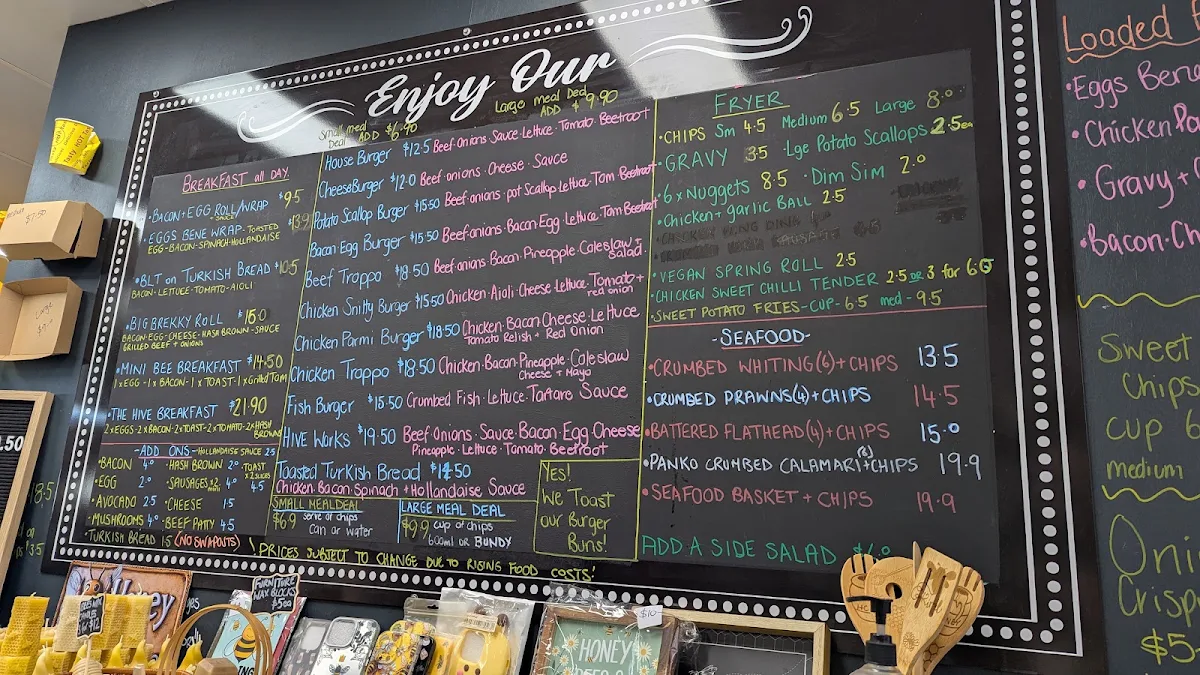 Enjoy Our
Small meal Deal ADD $6.90
Large meal Deal ADD $9.90
BREAKFAST all DAY.
•BACON+EGG ROLL/WRAP $9.5
+ SAUCE
•EGGS BENE WRAP. TOASTED
EGG-BACON-SPINACH-HOLLANDAISE
•BLT on TURKISH BREAD $10.5
BACON-LETTUCE-TOMATO-AIOLI
•BIG BREKKY ROLL $16.0
BACON-EGG-CHEESE-HASH BROWN-SAUCE
GRILLED BEEF + ONIONS
•MINI BEE BREAKFAST $14.50
1xEGG-1xBACON-1xTOAST-1xGrilled Tom
•THE HIVE BREAKFAST $21.90
2xEGGS-2xBACON-2xTOAST-2xTOMATO-2xHASH BROWN
-ADD ONS- HOLLANDAISE SAUCE 2.5
•BACON 4.0 •HASH BROWN 2.0 •TOAST 2 SLICES 4.5
•EGG 2.0 •SAUSAGES x2 mini 4.0
•AVOCADO 2.5 •CHEESE 1.5
•MUSHROOMS 4.0 •BEEF PATTY 4.5
•TURKISH BREAD 1.5 (NO SWAPOUTS)
House Burger $12.5 Beef·Onions·Sauce·Lettuce·Tomato·Beetroot
CheeseBurger $12.0 Beef·onions·Cheese·Sauce
Potato Scallop Burger $15.50 Beef·onions·pot Scallop·Lettuce·Tom·Beetroot
Bacon Egg Burger $15.50 Beef·onions·Bacon·Egg·Lettuce·Tom·Beetroot
Beef Trappo $18.50 Beef·onions·Bacon·Pineapple·Coleslaw salad
Chicken Snitty Burger $15.50 Chicken·Aioli·Cheese·Lettuce·Tomato+ red onion
Chicken Parmi Burger $18.50 Chicken·Bacon·Cheese·Lettuce
Tomato Relish + Red Onion
Chicken Trappo $18.50 Chicken·Bacon·Pineapple·Coleslaw
Cheese + Mayo
Fish Burger $15.50 Crumbed Fish·Lettuce·Tartare Sauce
Hive Works $19.50 Beef·Onions·Sauce·Bacon·Egg·Cheese
Pineapple·Lettuce·Tomato·Beetroot
Toasted Turkish Bread $14.50
Chicken Bacon Spinach + Hollandaise Sauce
SMALL MEAL DEAL
$6.9 serve of chips
Can or water
LARGE MEAL DEAL
$9.9 cup of chips
600ml or BUNDY
Yes!
We Toast
our Burger
Buns!
!PRICES SUBJECT TO CHANGE DUE TO RISING FOOD COSTS!
FRYER
•CHIPS Sm 4.5 Medium 6.5 Large 8.0
•GRAVY 3.5 •Lge Potato Scallops 2.5ea
•6 x Nuggets 8.5 •Dim Sim 2.0
•Chicken + garlic BALL 2.5
•VEGAN SPRING ROLL 2.5
•CHICKEN SWEET CHILLI TENDER 2.5 OR 3 for 6.0
•SWEET POTATO FRIES-CUP-6.5 med-9.5
-SEAFOOD-
•CRUMBED WHITING(6)+CHIPS 13.5
•CRUMBED PRAWNS(4)+CHIPS 14.5
•BATTERED FLATHEAD(4)+CHIPS 15.0
•PANKO CRUMBED CALAMARI(8)+CHIPS 19.9
•SEAFOOD BASKET + CHIPS 19.9
ADD A SIDE SALAD
Loaded
•Eggs Bene
•Chicken
•Gravy +
•Bacon·Ch
Sweet
Chips
cup 6
medium
Oni
Crisp
$5
FURNITURE
WAX BLOCKS
$10
HONEY